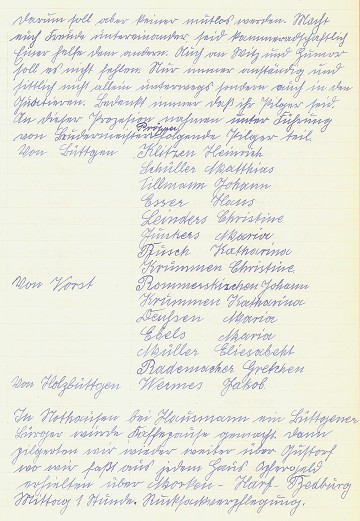 Darum soll aber keiner mutlos werden. Macht
euch Freude untereinander seid kammeradschaftlich
Einer helfe dem andern. Auch an Witz und Humor
soll es nicht fehlen. Nur immer anständig und
sittlich nicht allein unterwegs sondern auch in den
Quatieren. Bedenkt immer daß ihr Pilger seid.
An dieser Prozession nahmen unter Führung
von Brudermeister folgende Pilger teil.
Von Büttgen Klitzen Heinrich
Schüller Matthias
Tillmann Johann
Esser Hans
Leinders Christine
Junkers Maria
Busch Katharina
Krummen Christine
Von Vorst Rommerskirchen Johann
Krummen Katharina
Deußen Maria
Ebels Maria
Müller Eliesabeht
Rademacher Gretchen
Von Holzbüttgen Wermes Jakob
In Nothausen bei Hausmann ein Büttgener
Bürger wurde Kaffepause gemacht. Dann
pilgerten wir wieder weiter über Gustorf
wo wir faßt aus jedem Haus Opfergeld
erhielten über Morken-Harf-Bedburg
Mittag 1 Stunde. Rucksackverpflegung.